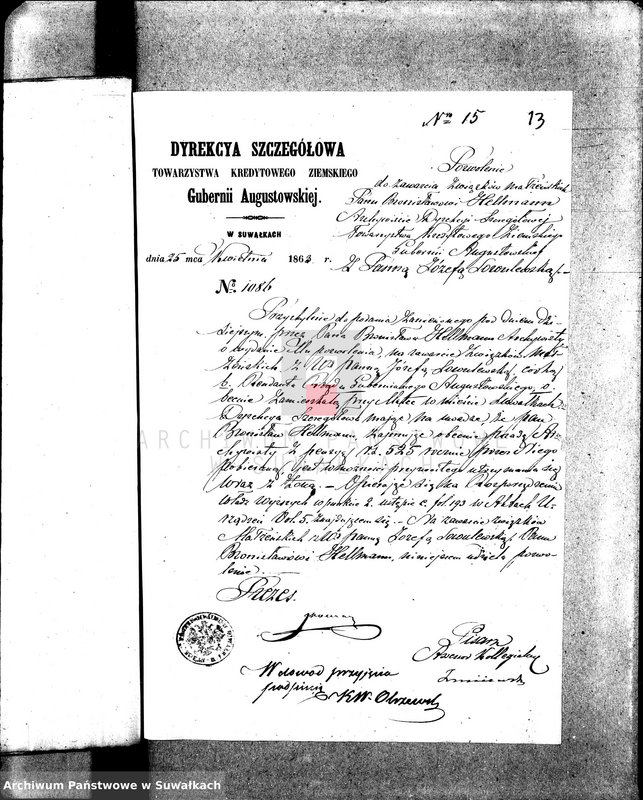 Nro 15 13
DYREKCYA SZCZEGÓŁOWA
TOWARZYSTWA KREDYTOWEGO ZIEMSKIEGO
Gubernii Augustowskiej.
W SUWAŁKACH
dnia 25 mca Kwietnia 1863 r.
No. 1086
Pozwolenie
do zawarcia Związków Małżeńskich
Panu Bronisławowi Hellmann
Archiwiście Dyrekcyi Szczegółowej
Towarzystwa Kredytowego Ziemskiego
Gubernii Augustowskiej
Z Panną Józefą
Przychylenie do podania zaniesionego pod dniem dzi-
siejszym przez Pana Bronisława Hellmann Archiwistę
o wydanie Mu pozwolenia, na zawarcie Związków Mał-
żeńskich z Wą panną Józefą córką
b. Rendanta Gubernialnego Augustowskiego, o-
becnie zamieszkałą przy Matce w mieście Suwałkach
Dyrekcya Szczegółowa mając na uwadze, że pan
Bronisław Hellmann zajmując obecnie posadę Ar-
chiwisty z pensyą rs. 525 rocznie przez Niego
pobieraną, jest w możności przyzwoitego utrzymania się
wraz z Żoną. – Opierając się na Rozporządzeniu
władz wyższych w punkcie 2. ustępie c. fol. 193 w Aktach U-
rządzeń Vol. 5. znajdującem się. – Na zawarcie związków
Małżeńskich z Wą panną Józefą Panu
Bronisławowi Hellmann, niniejszem udziela pozwo-
lenie.
Prezes.
Pisarz
Assesor Kollegialny
W dowód przyjęcia
podpisuję
Archiwum Państwowe w Suwałkach